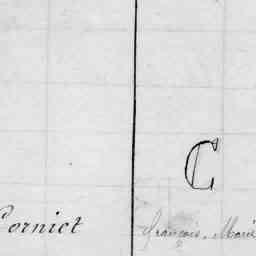 C
Corniet François, Marie